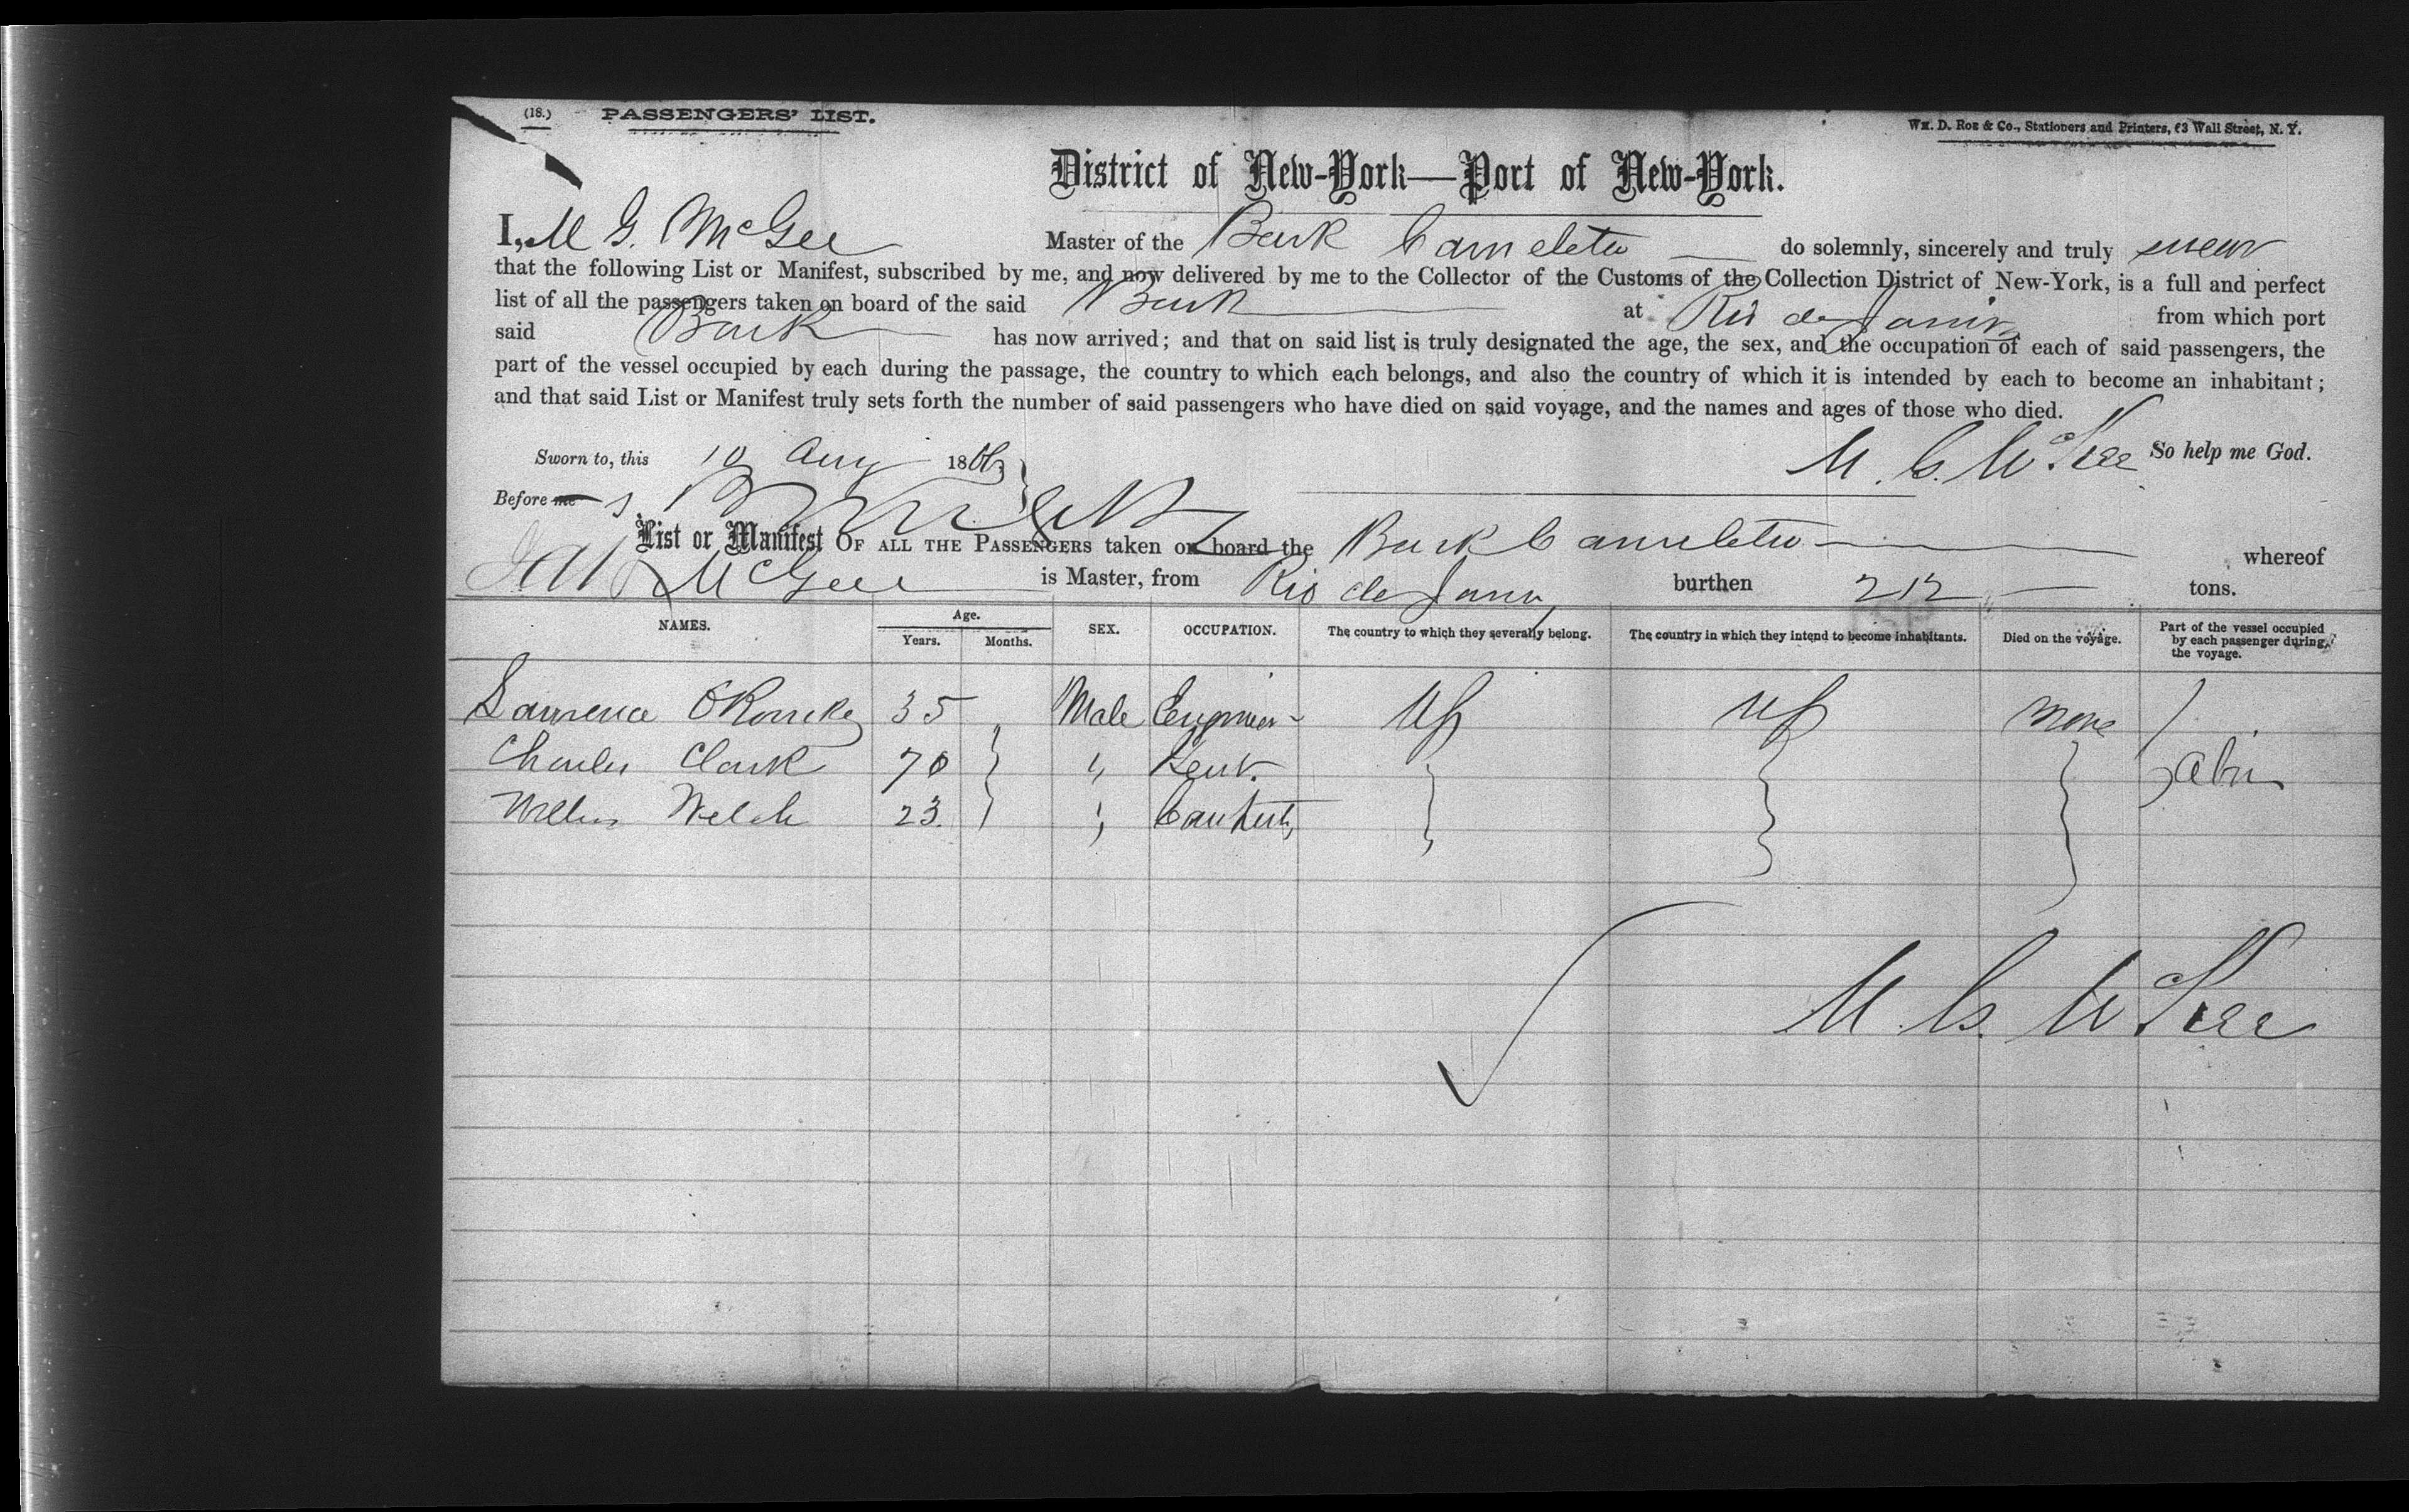 (18.) PASSENGERS' LIST.
Wm. D. Roe & Co., Stationers and Printers, 63 Wall Street, N. Y.
District of New-York—Port of New-York.
I, M G. McGee Master of the Bark do solemnly, sincerely and truly swear
that the following List or Manifest, subscribed by me, and now delivered by me to the Collector of the Customs of the Collection District of New-York, is a full and perfect
list of all the passengers taken on board of the said Bark at Rio de Janiro from which port
said Bark has now arrived; and that on said list is truly designated the age, the sex, and the occupation of each of said passengers, the
part of the vessel occupied by each during the passage, the country to which each belongs, and also the country of which it is intended by each to become an inhabitant;
and that said List or Manifest truly sets forth the number of said passengers who have died on said voyage, and the names and ages of those who died.
Sworn to, this 10 Aug 186 M. G. McGee So help me God.
Before me
List or Manifest OF ALL THE PASSENGERS taken on board the Bark whereof
McGee is Master, from Rio de burthen 212 tons.
NAMES. Age. Years. Months. SEX. OCCUPATION. The country to which they severally belong. The country in which they intend to become inhabitants. Died on the voyage. Part of the vessel occupied by each passenger during the voyage.
Lawrence 35 Male Engineer US US None
Charles Clark 70 " Gent. Cabin
Welch 23 "
M. G. McGee